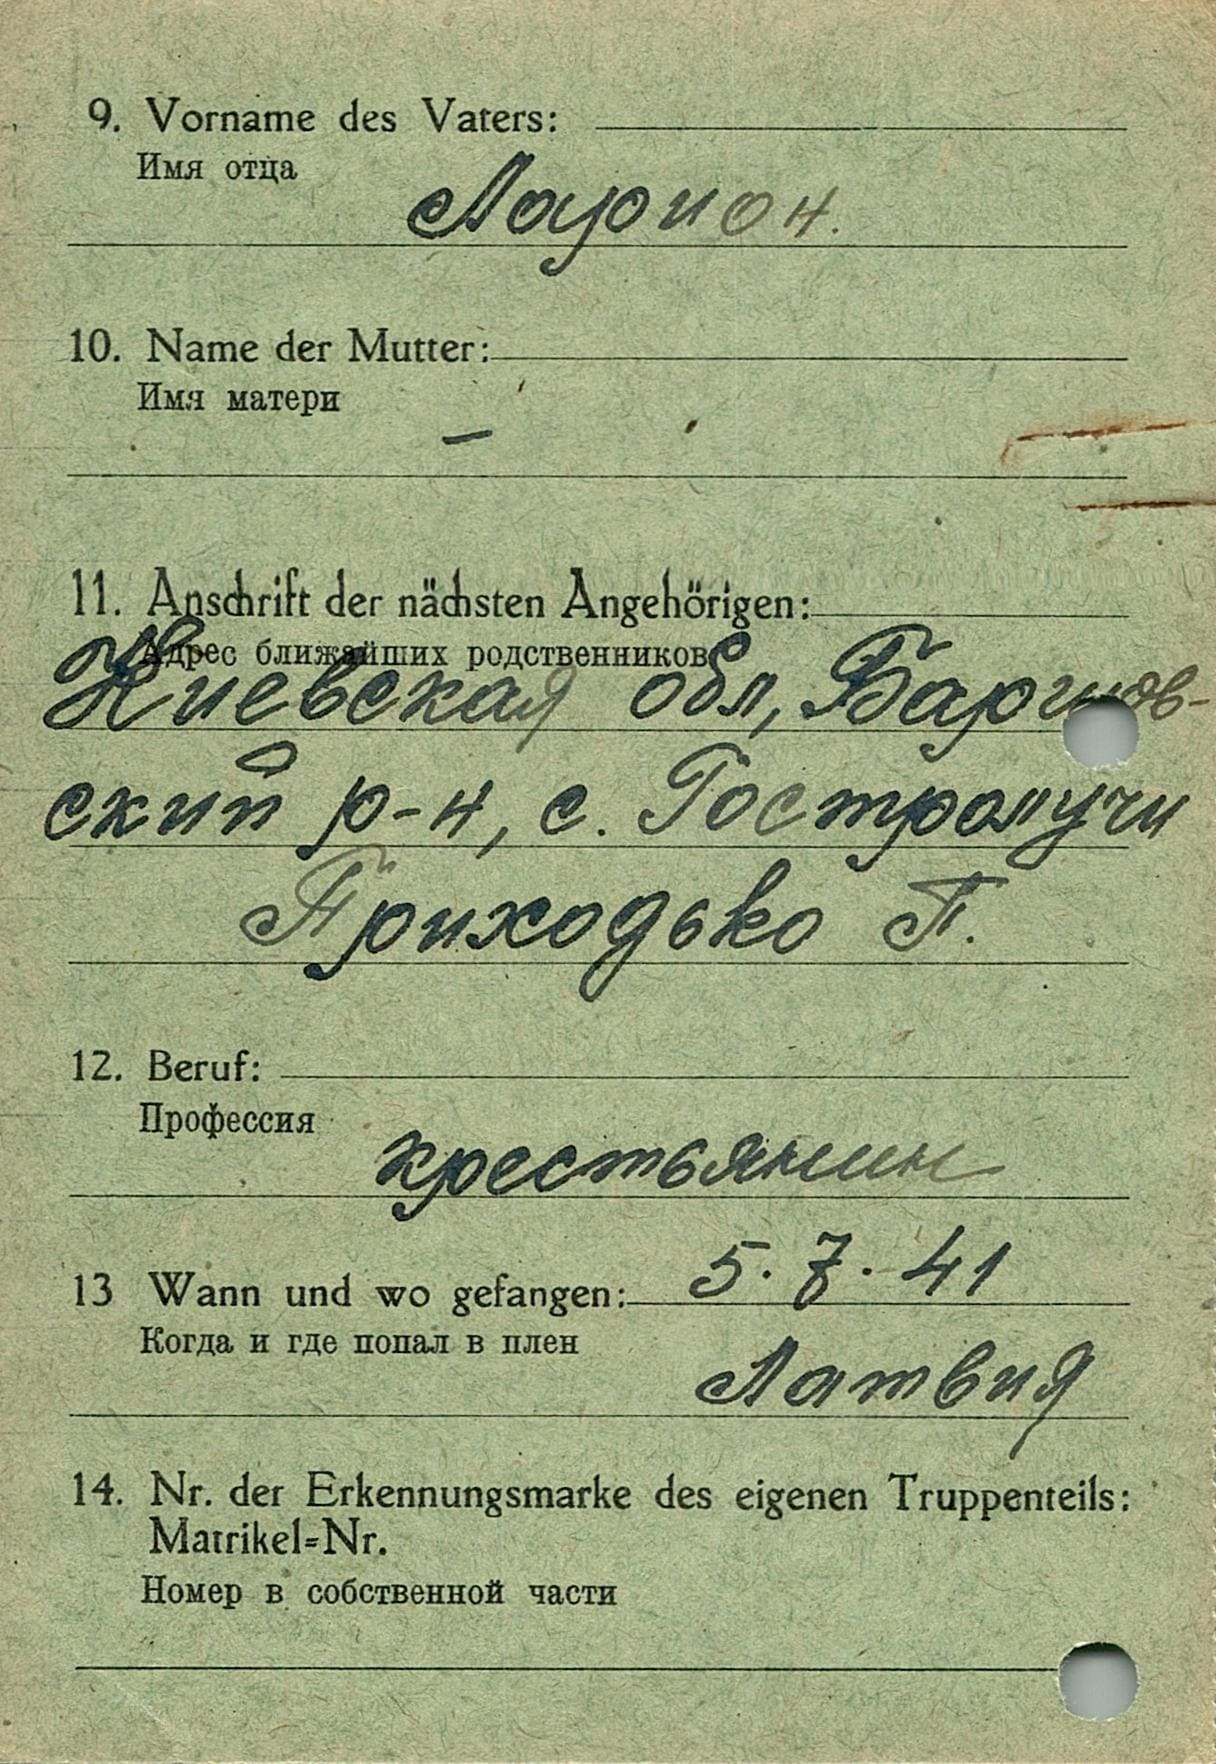 9. Vorname des Vaters:
Имя отца
Ларион.
10. Name der Mutter:
Имя матери
–
11. Anschrift der nächsten Angehörigen:
Адрес ближайших родственников
Киевская обл,
ский р-н, с. Гостролучи
Приходько П.
12. Beruf:
Профессия
крестьянин
13 Wann und wo gefangen: 5.7.41
Когда и где попал в плен
Латвия
14. Nr. der Erkennungsmarke des eigenen Truppenteils:
Matrikel=Nr.
Номер в собственной части